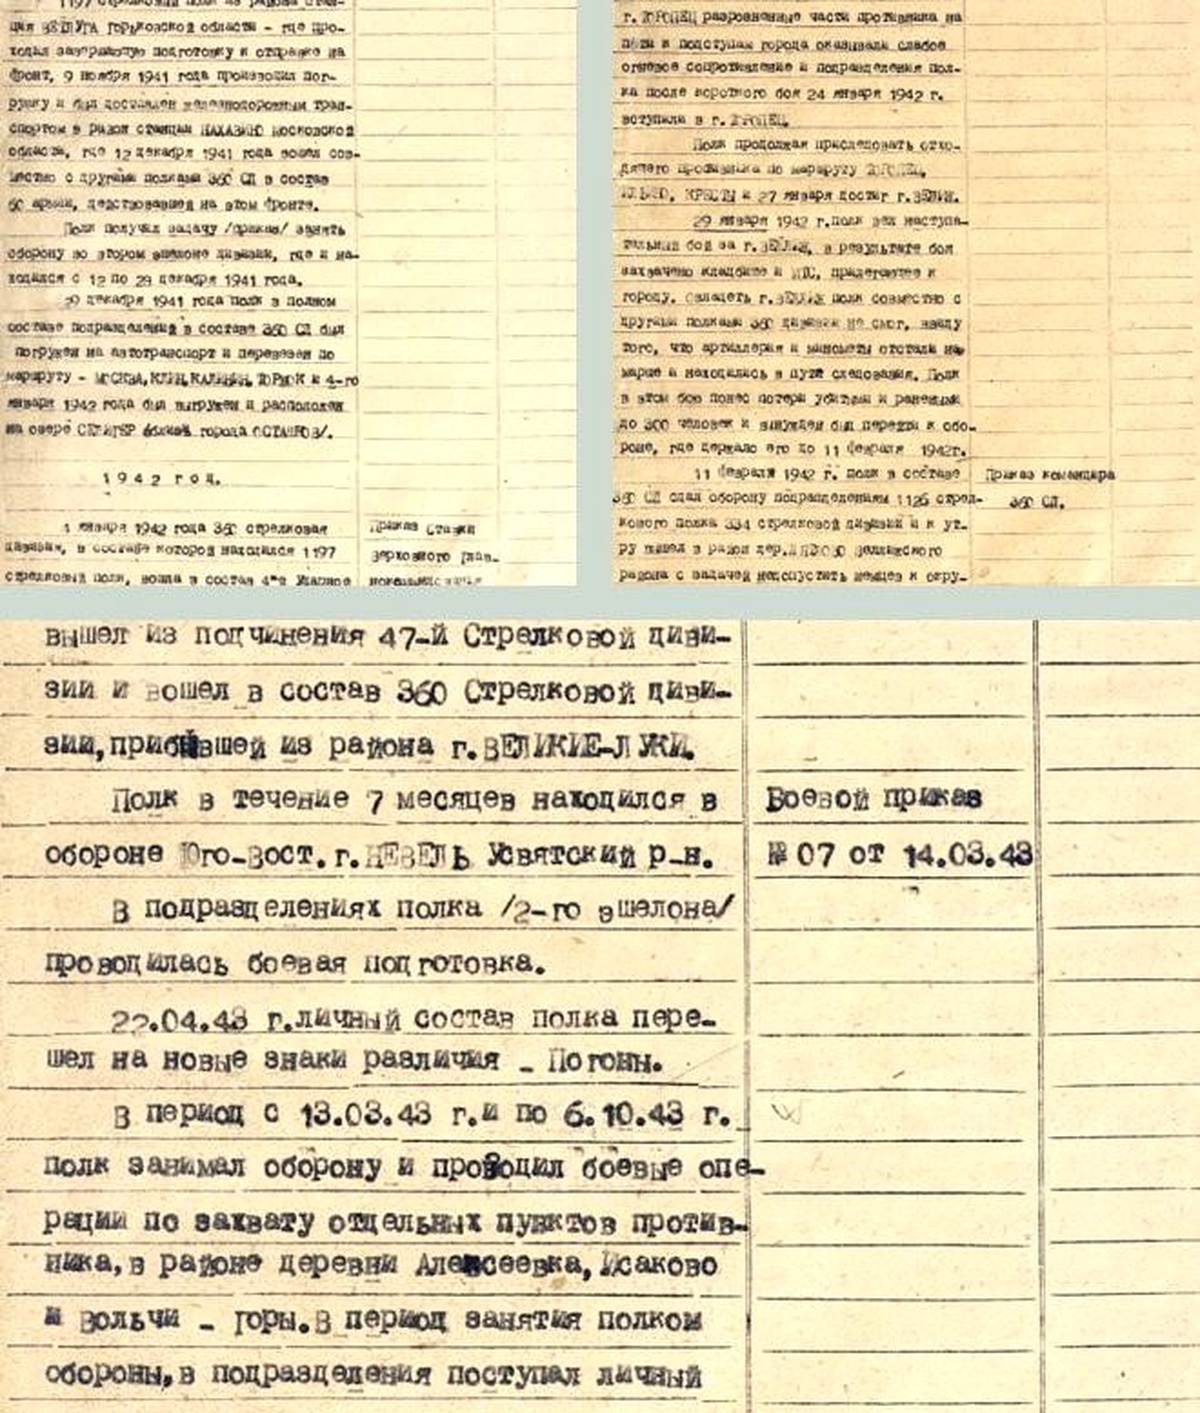 1197 стрелковый полк из района стан-
ция ВЕТЛУГА Горьковской области - где про-
ходил завершающую подготовку к отправке на
фронт, 9 ноября 1941 года производил пог-
рузку и был доставлен железнодорожным тран-
спортом в район станции НАХАБИНО Московской
области, где 12 декабря 1941 года вошел сов-
местно с другими полками 360 СД в состав
60 армии, действовавшей на этом фронте.
Полк получил задачу /приказ/ занять
оборону во втором эшелоне дивизии, где и на-
ходился с 12 по 29 декабря 1941 года.
29 декабря 1941 года полк в полном
составе подразделений в составе 360 СД был
погружен на автотранспорт и перевезен по
маршруту - МОСКВА, КЛИН, КАЛИНИН, ТОРЖОК и 4-го
января 1942 года был выгружен и расположен
на озере СЕЛИГЕР /близ города ОСТАШКОВ/.
1942 год.
1 января 1942 года 360 стрелковая
дивизия, в составе которой находился 1197
стрелковый полк, вошла в состав 4-й Ударное
Приказ Ставки
Верховного Глав-
нокомандования
г. ТОРОПЕЦ разрозненные части противника на
пути к подступам города оказывали слабое
огневое сопротивление и подразделения пол-
ка после короткого боя 24 января 1942 г.
вступили в г. ТОРОПЕЦ.
Полк продолжал преследовать отхо-
дящего противника по маршруту ТОРОПЕЦ,
ИЛЬИНО, КРЕСТЫ и 27 января достиг г. ВЕЛИЖ.
29 января 1942 г. полк вел наступа-
тельный бой за г. ВЕЛИЖ, в результате боя
захвачено кладбище и МТС, прилегающее к
городу. Овладеть г. ВЕЛИЖ полк совместно с
другими полками 360 дивизии не смог, ввиду
того, что артиллерия и минометы отстали на
марше и находились в пути следования. Полк
в этом бою понес потери убитыми и ранеными
до 300 человек и вынужден был перейти к обо-
роне, где держало его до 11 февраля 1942г.
11 февраля 1942 г. полк в составе
360 СД сдал оборону подразделениям 1126 стрел-
кового полка 334 стрелковой дивизии и к ут-
ру вышел в район дер. Велижского
района с задачей недопустить немцев к окру-
Приказ командира
360 СД.
вышел из подчинения 47-й Стрелковой диви-
зии и вошел в состав 360 Стрелковой диви-
зии, прибывшей из района г. ВЕЛИКИЕ-ЛУКИ.
Полк в течение 7 месяцев находился в
обороне Юго-Вост. г. НЕВЕЛЬ Усвятский р-н.
В подразделениях полка /2-го эшелона/
проводилась боевая подготовка.
22.04.43 г. личный состав полка пере-
шел на новые знаки различия - Погоны.
В период с 13.03.43 г. и по 6.10.43 г.
полк занимал оборону и проводил боевые опе-
рации по захвату отдельных пунктов против-
ника, в районе деревни Алексеевка, Исаково
и Вольчи - Горы. В период занятия полком
обороны, в подразделения поступал личный
Боевой приказ
№ 07 от 14.03.43